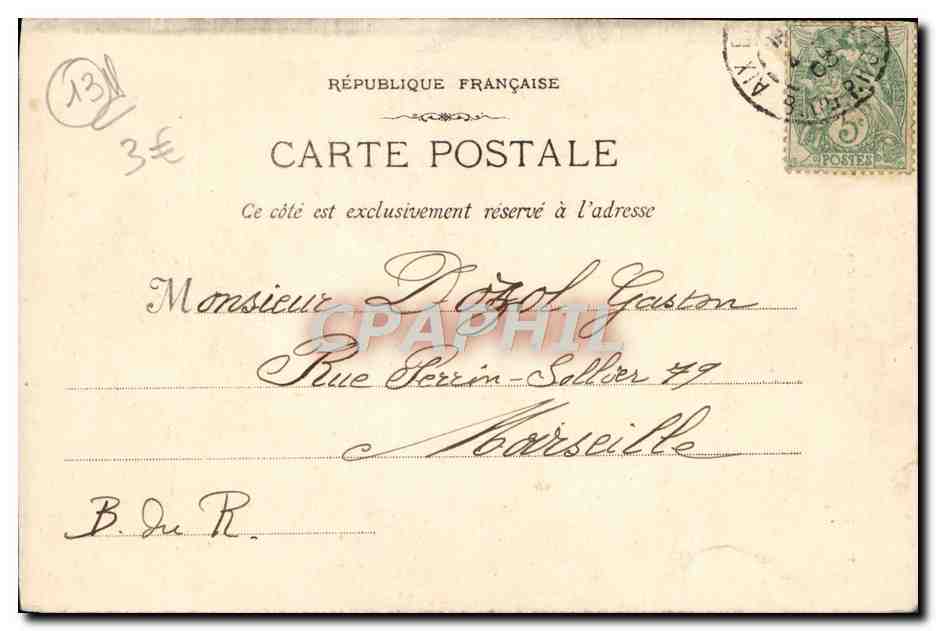 13
3€
AIX
03
5c
POSTES
RÉPUBLIQUE FRANÇAISE
CARTE POSTALE
Ce côté est exclusivement réservé à l'adresse
Monsieur Dozol Gaston
CPAPHIL
Rue Perrin-Sollier 79
Marseille
B. du R.